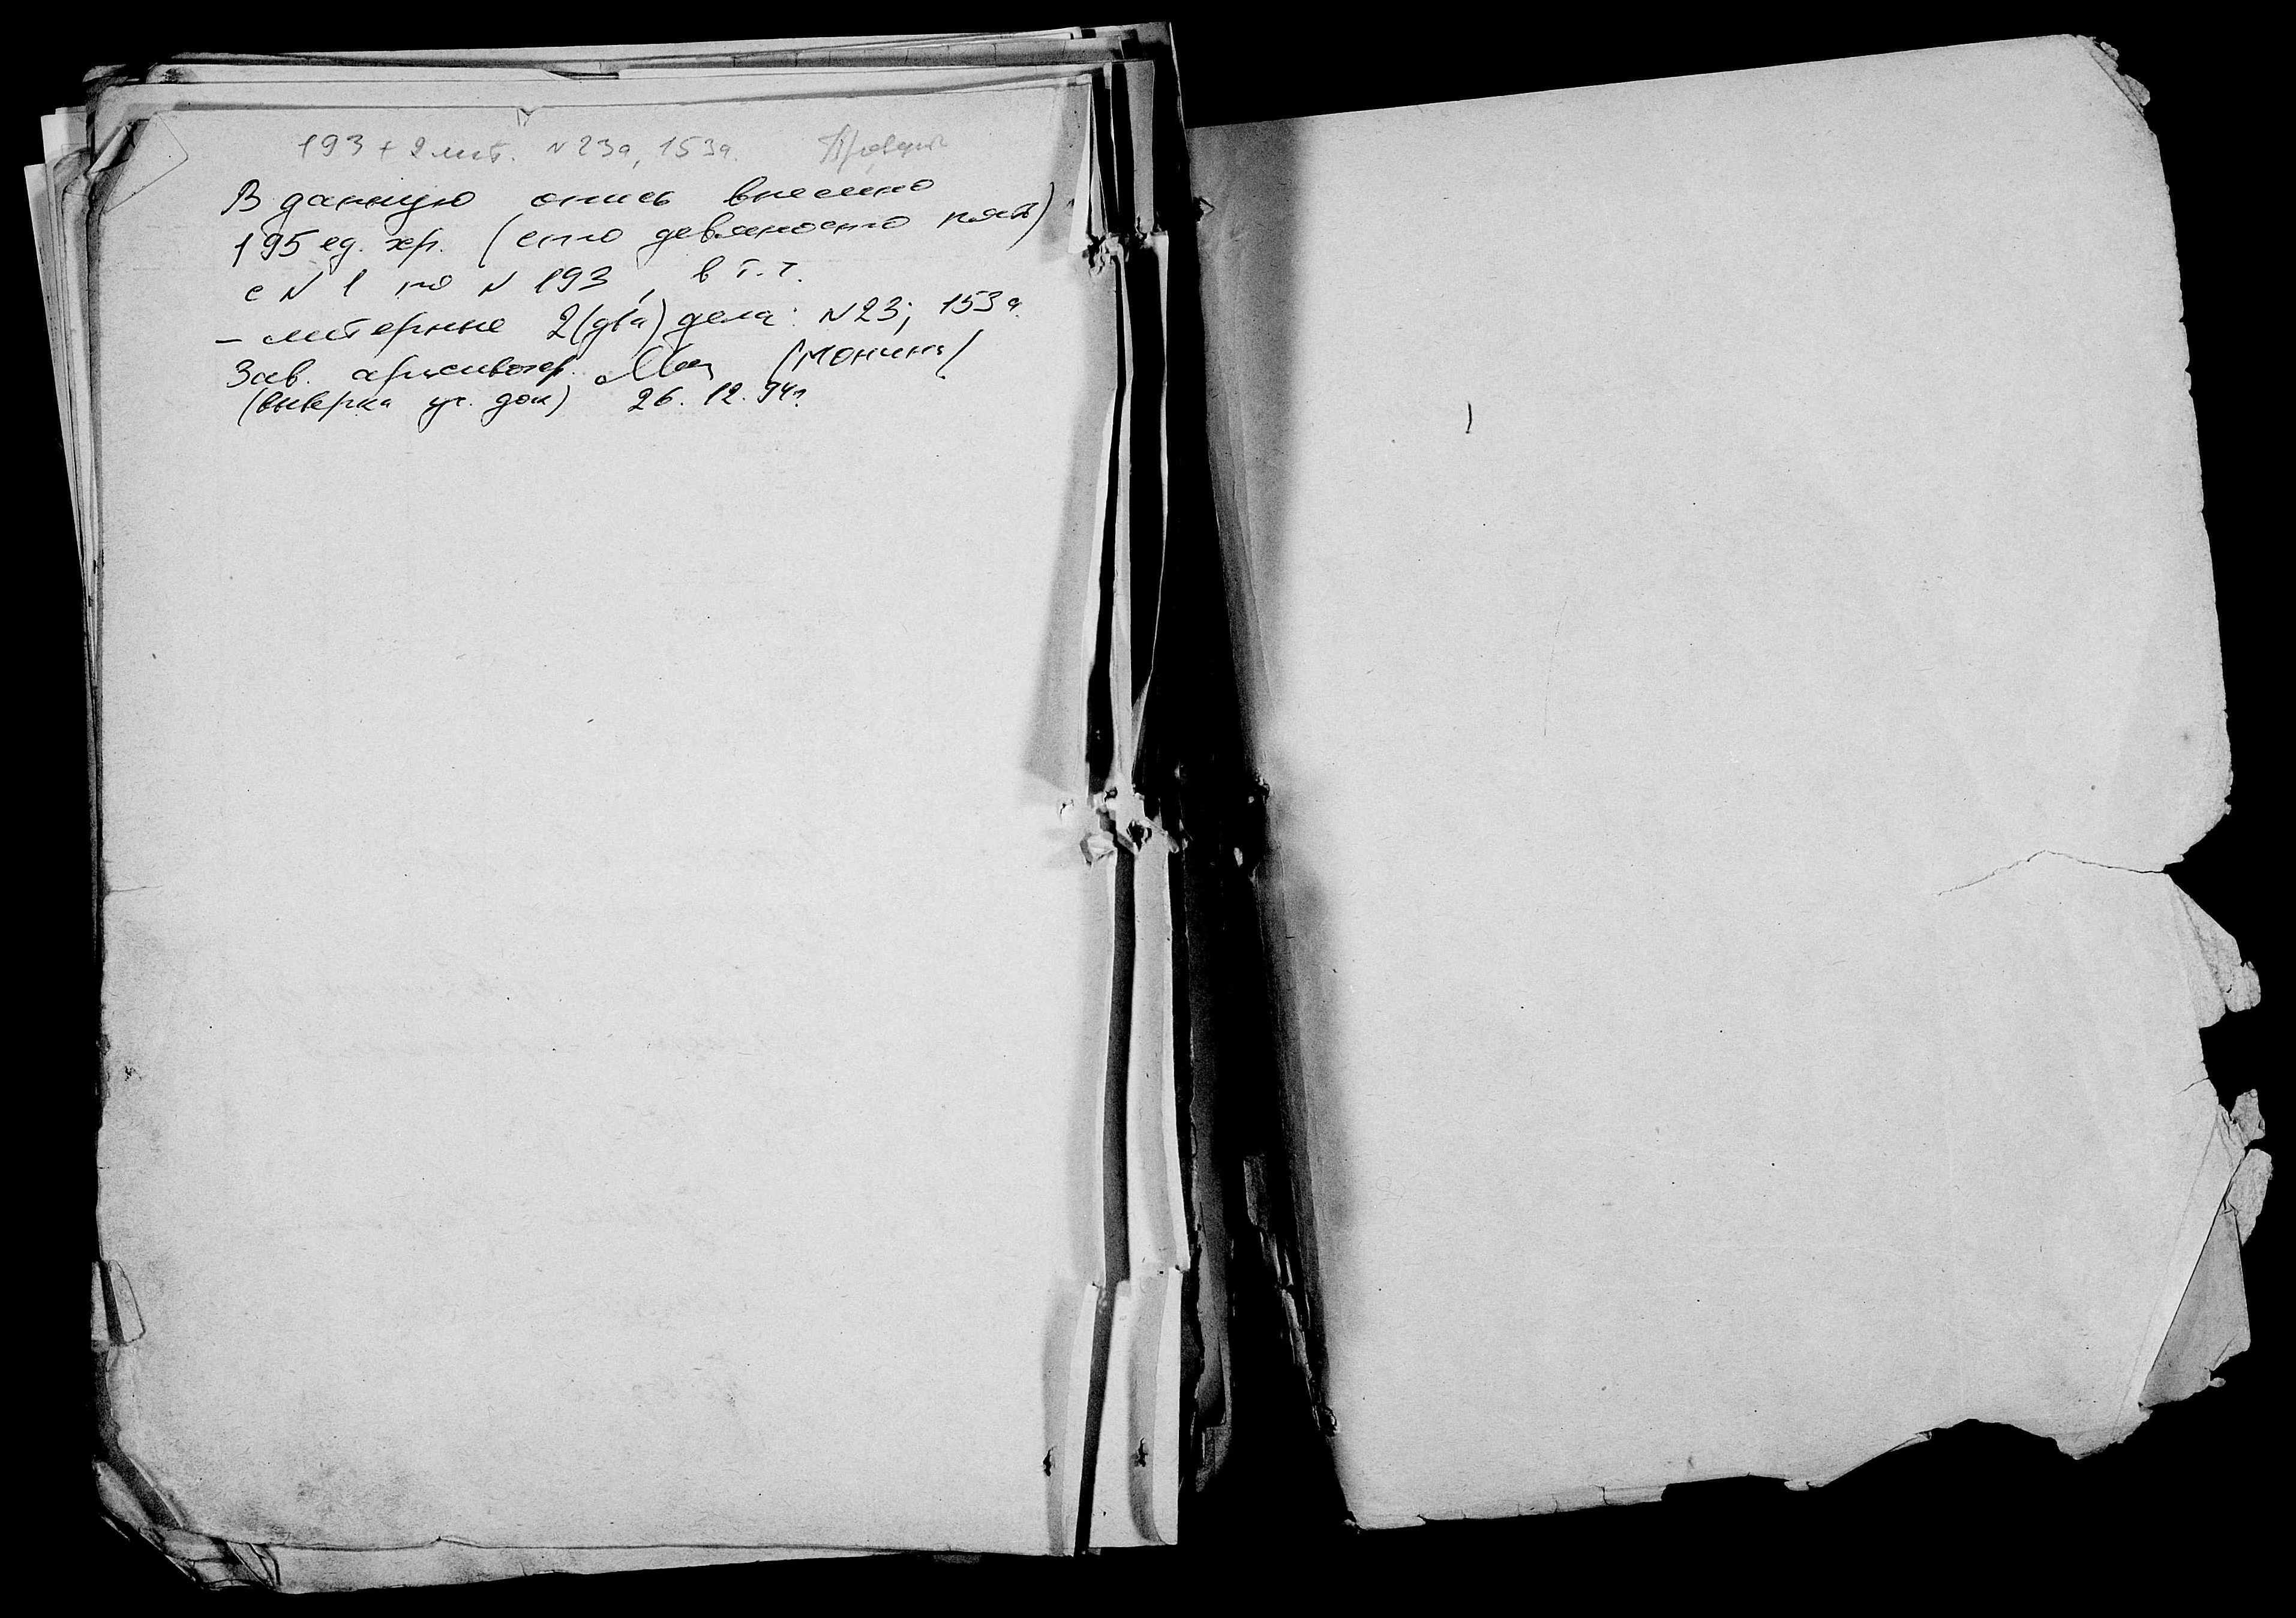 193 + 2 лит. N 23а, 153а.
В данную опись внесено
195 ед. хр. (сто девяносто пять)
с N 1 по N 193, в т.ч.
– литерные 2 (два) дела: N 23; 153а.
Зав. архивохр. (Монина)
(выверка уч. док) 26.12.94г.